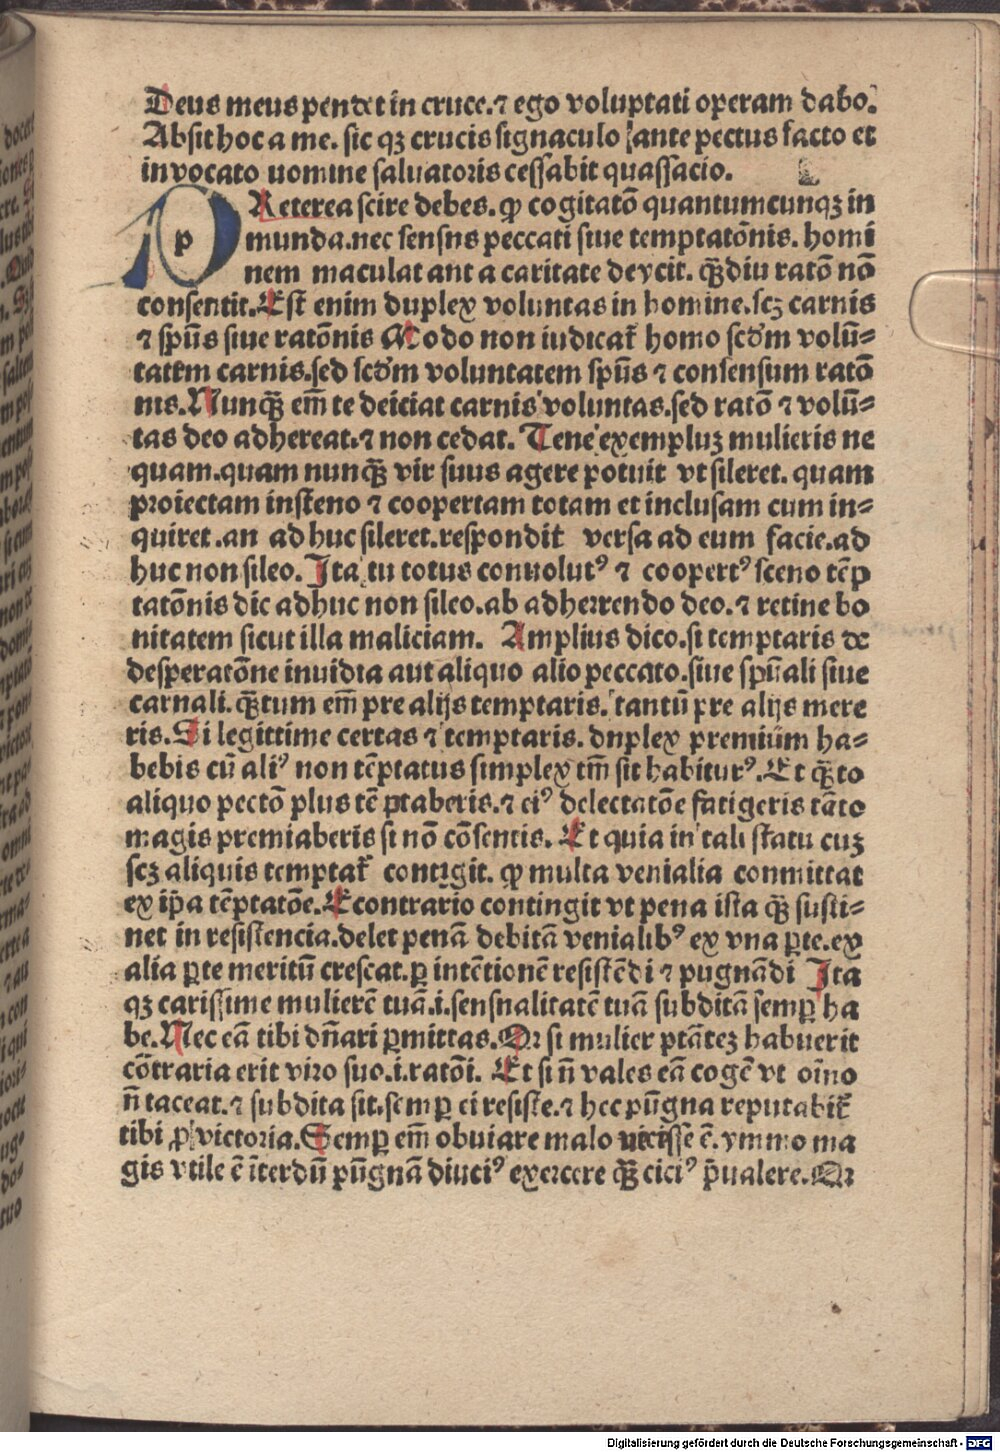 Deus meus pendet in cruce.⁊ ego voluptati operam dabo.
Absit hoc a me. sic qꝫ crucis signaculo ante pectus facto et
invocato uomine saluatoris cessabit quassacio.
PReterea scire debes. ꝙ cogitatō quantumcunqꝫ in
munda.nec sensns peccati siue temptatōnis. homi
nem maculat ant a caritate deycit. qᷓdiu ratō nō
consentit.Est enim duplex voluntas in homine.scꝫ carnis
⁊ spūs siue ratōnis Modo non iudicat̄ homo scd̄m volū-
tatem carnis.sed scd̄m voluntatem spūs ⁊ consensum ratō
nis.Nunqᷓ em̄ te deiciat carnis voluntas.sed ratō ⁊ volū-
tas deo adhereat.⁊ non cedat. Tene exempluꝫ mulieris ne
quam.quam nunqᷓ vir suus agere potuit vt sileret. quam
proiectam insteno ⁊ coopertam totam et inclusam cum in-
quiret.an adhuc sileret.respondit versa ad eum facie.ad
huc non sileo. Ita tu totus conuolutꝰ ⁊ coopertꝰ sceno tēp
tatōnis dic adhuc non sileo.ab adherrendo deo.⁊ retine bo
nitatem sicut illa maliciam. Amplius dico.si temptaris de
desperatōne inuidia aut aliquo alio peccato.siue spūali siue
carnali.qᷓtum em̄ pre alijs temptaris. tantū pre alijs mere
ris.Si legittime certas ⁊ temptaris. dnplex premium ha-
bebis cū aliꝰ non tēptatus simplex tm̄ sit habiturꝰ.Et qᷓto
aliquo pectō plus tē ptaberis.⁊ eiꝰ delectatōe fatigeris tāto
magis premiaberis si nō cōsentis. Et quia in tali statu cuꝫ
scꝫ aliquis temptat̄ contigit. ꝙ multa venialia conmittat
ex ip̄a tēptatōe.Econtrario contingit vt pena ista qᷓ susti-
net in resistencia.delet penā debitā venialibꝰ ex vna ꝑte.ex
alia ꝑte meritū crescat.ꝑ intētionē resistēdi ⁊ pugnādi Ita
qꝫ carissime mulierē tuā.i.sensnalitatē tuā subditā semꝑ ha
be.Nec eā tibi dn̄ari ꝑmittas.Qr si mulier ptāteꝫ habuerit
cōtraria erit viro suo.i.ratōi. Et si n̄ vales eā cogē vt oīno
n̄ taceat.⁊ subdita sit.semꝑ ei resiste.⁊ hec pūgna reputabit̄
tibi ꝓ victoria.Semꝑ em̄ obuiare malo vicisse ē.ymmo ma
gis vtile ē īterdū pūgnā diuciꝰ exercere qᷓ ciciꝰ p̄ualere.Qr
Digitalisierung gefördert durch die Deutsche Forschungsgemeinschaft - DFG